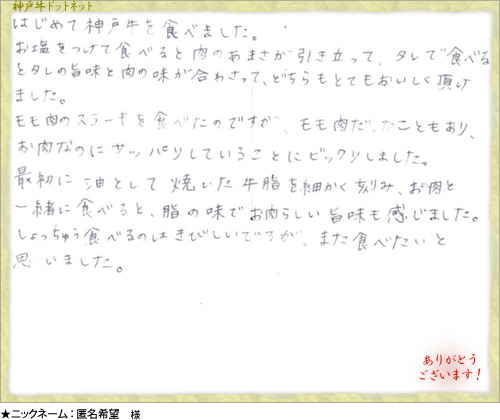 神戸牛ドットネット
はじめて神戸牛を食べました。
お塩をつけて食べると肉のあまさが引き立って、タレで食べる
とタレの旨味と肉の味が合わさって、どちらもとてもおいしく頂け
ました。
モモ肉のステーキを食べたのですが、モモ肉だったこともあり、
お肉なのにサッパリしていることにビックリしました。
最初に油として焼いた牛脂を細かく刻み、お肉と
一緒に食べると、脂の味でお肉らしい旨味も感じました。
しょっちゅう食べるのはきびしいですが、また食べたいと
思いました。
ありがとう
ございます!
★ニックネーム:匿名希望 様